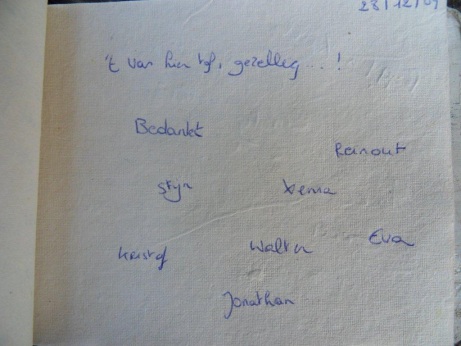 23/12/09
't van hier tof, gezellig...!
Bedankt
Reinout
Stijn Xenia
Kristof Walter Eva
Jonathan